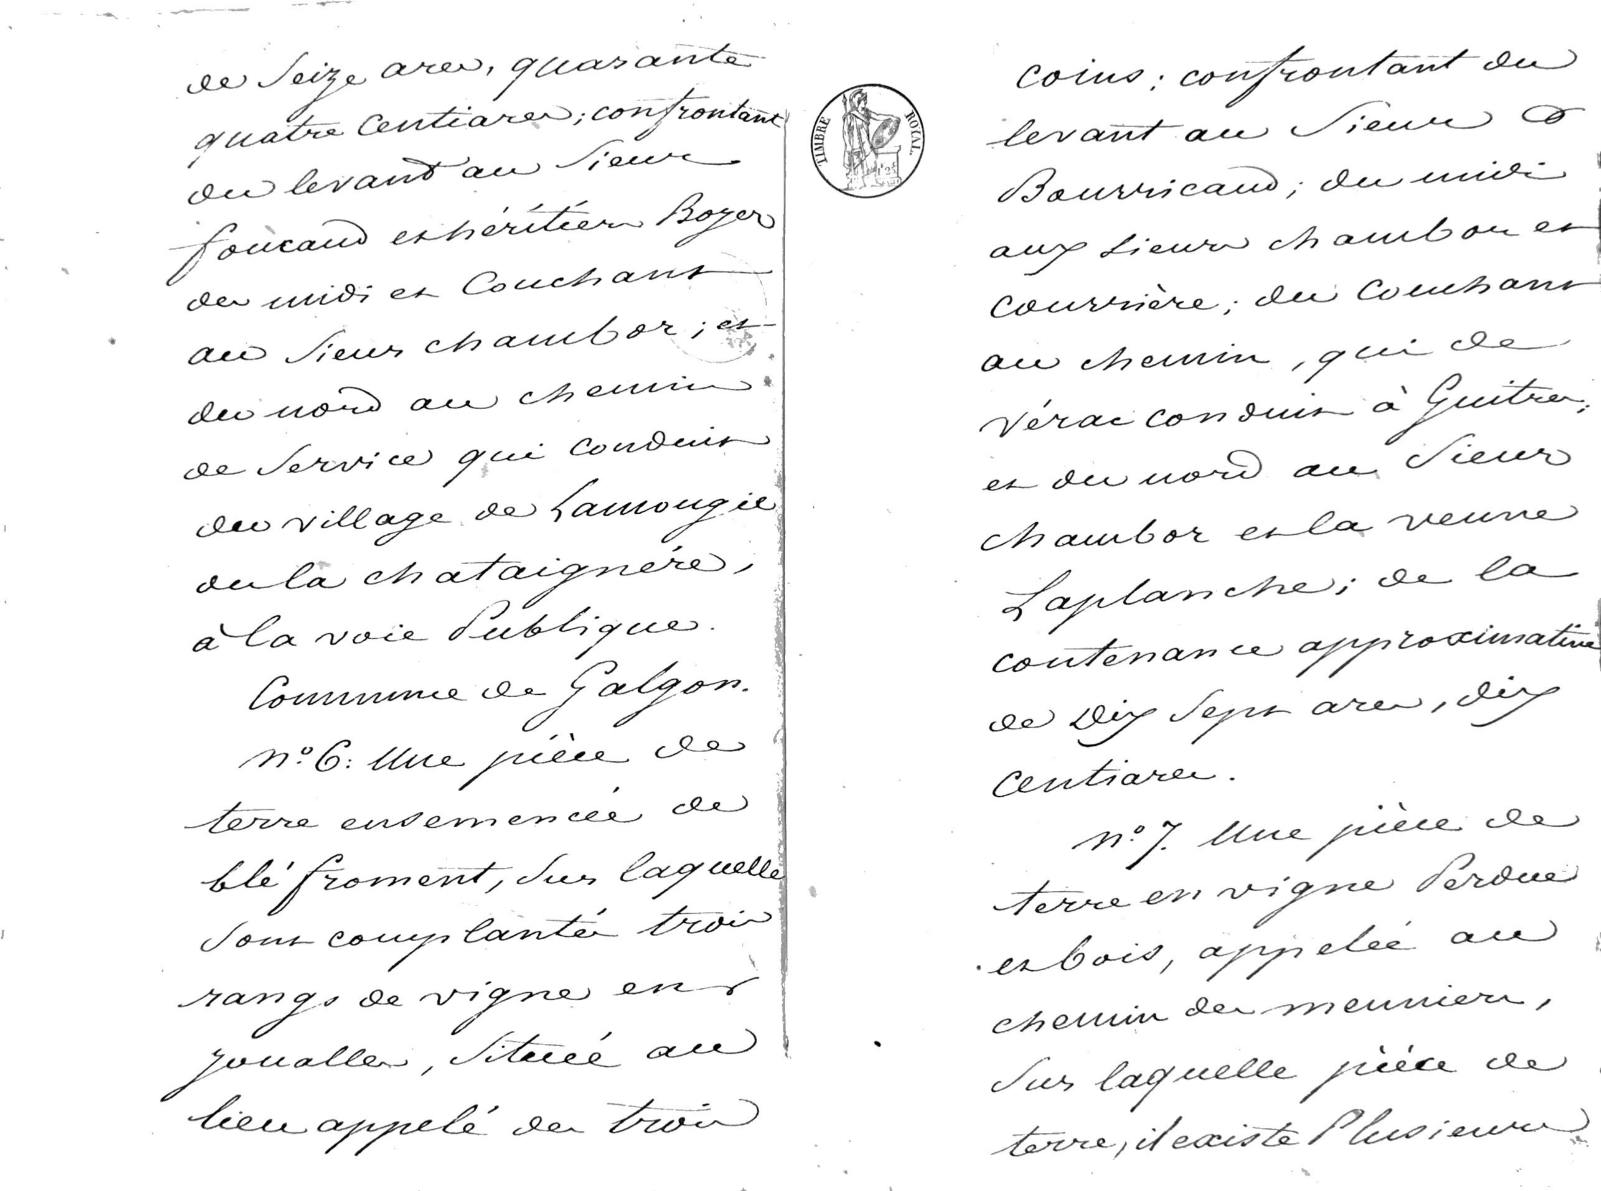 de Seize ares, quarante
quatre Centiares ; confrontant
du levant au Sieur
foucaud et héritiers Boyer
du midi et Couchant
au Sieur chambor ; et
du nord au chemin
de Service qui conduit
du village de Lamougie
ou la chataignére,
à la voie Publique.
Commune de Galgon.
n.º 6: Une pièce de
terre ensemencée de
blé froment, Sur laquelle
Sont complantés trois
rangs de vigne en
joualles, Située au
lieu appelé des trois
TIMBRE ROYAL
coins ; confrontant du
levant au Sieur
Bourricaud ; du midi
aux Sieurs chambor et
courrière ; du Couchant
au chemin, qui de
vérac conduit à Guitres ;
et du nord au Sieur
chambor et la veuve
Laplanche ; de la
contenance approximative
de Dix Sept ares, dix
Centiares.
n.º 7. Une pièce de
terre en vigne Perdue
et bois, appelée au
chemin des meuniers,
Sur laquelle pièce de
terre, il existe Plusieurs